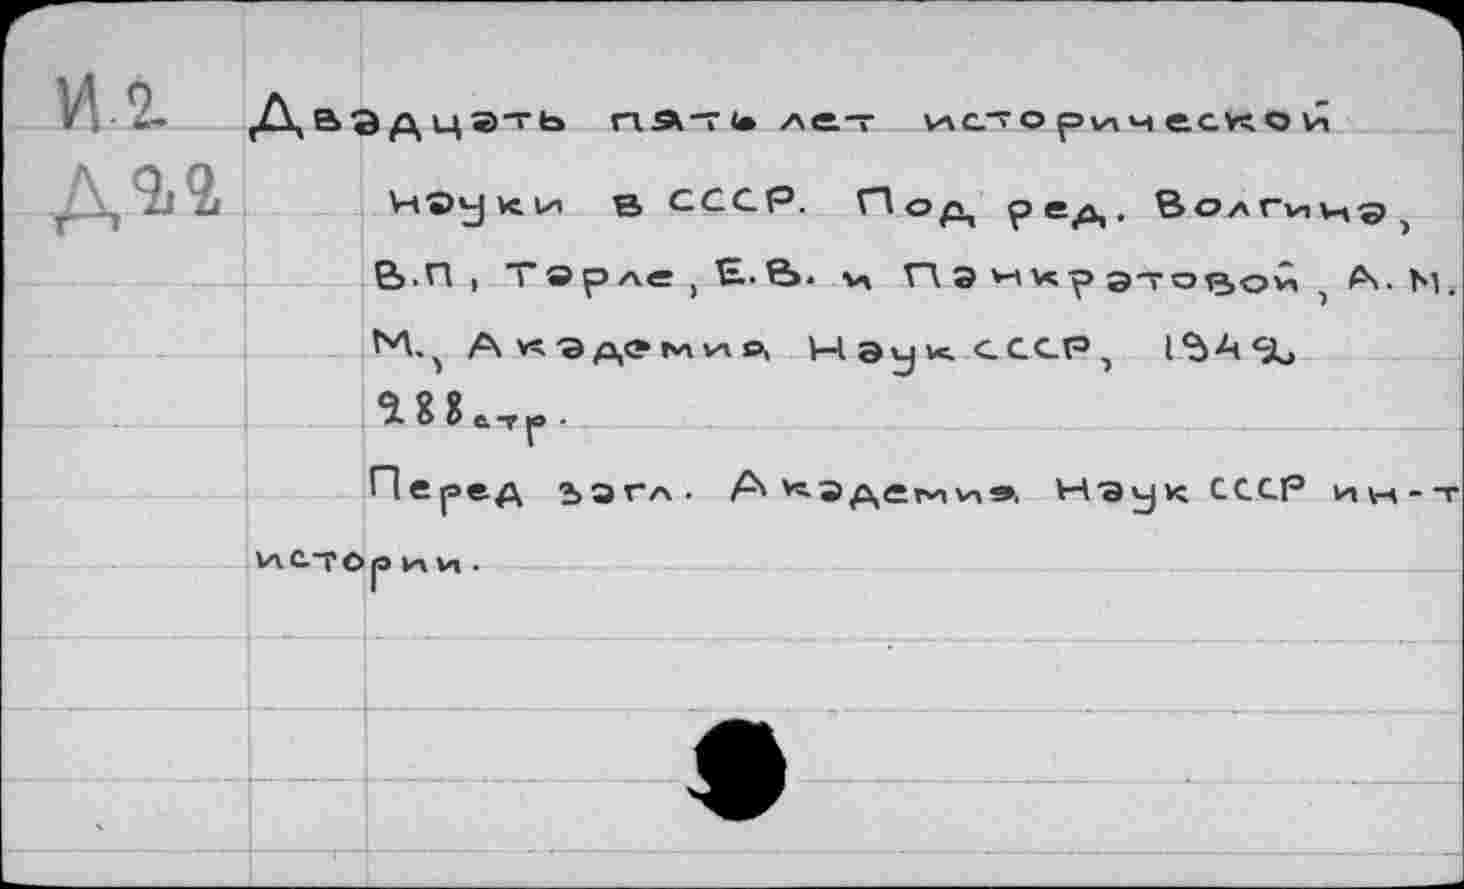 И.2. Двадцать пять лет исторической
Д22 науки в СССР. Под ред. Волгина,
В.П, Тарле, Е.В. и Панкратовой, А. М.
М., Академия Наук СССР, 1942
288 стр.
Перед загл. Академия Наук СССР ин-т
истории.